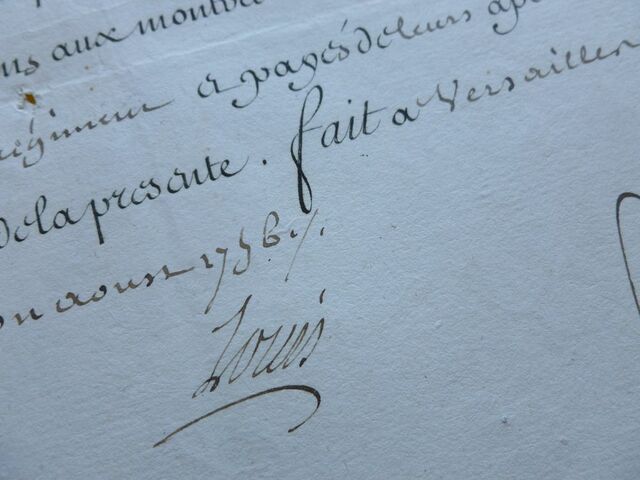 ns aux montre
régiment et payés de leurs ap
de la presente. fait a Versailles
aoust 1756 /.
Louis